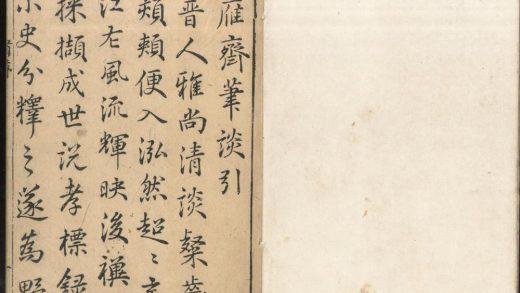 雁齋筆談引
晉人雅尚清談粲
頰便入泓然超〻
江左風流輝映後禩
採擷成世說孝標錄
史分釋之遂蔿野